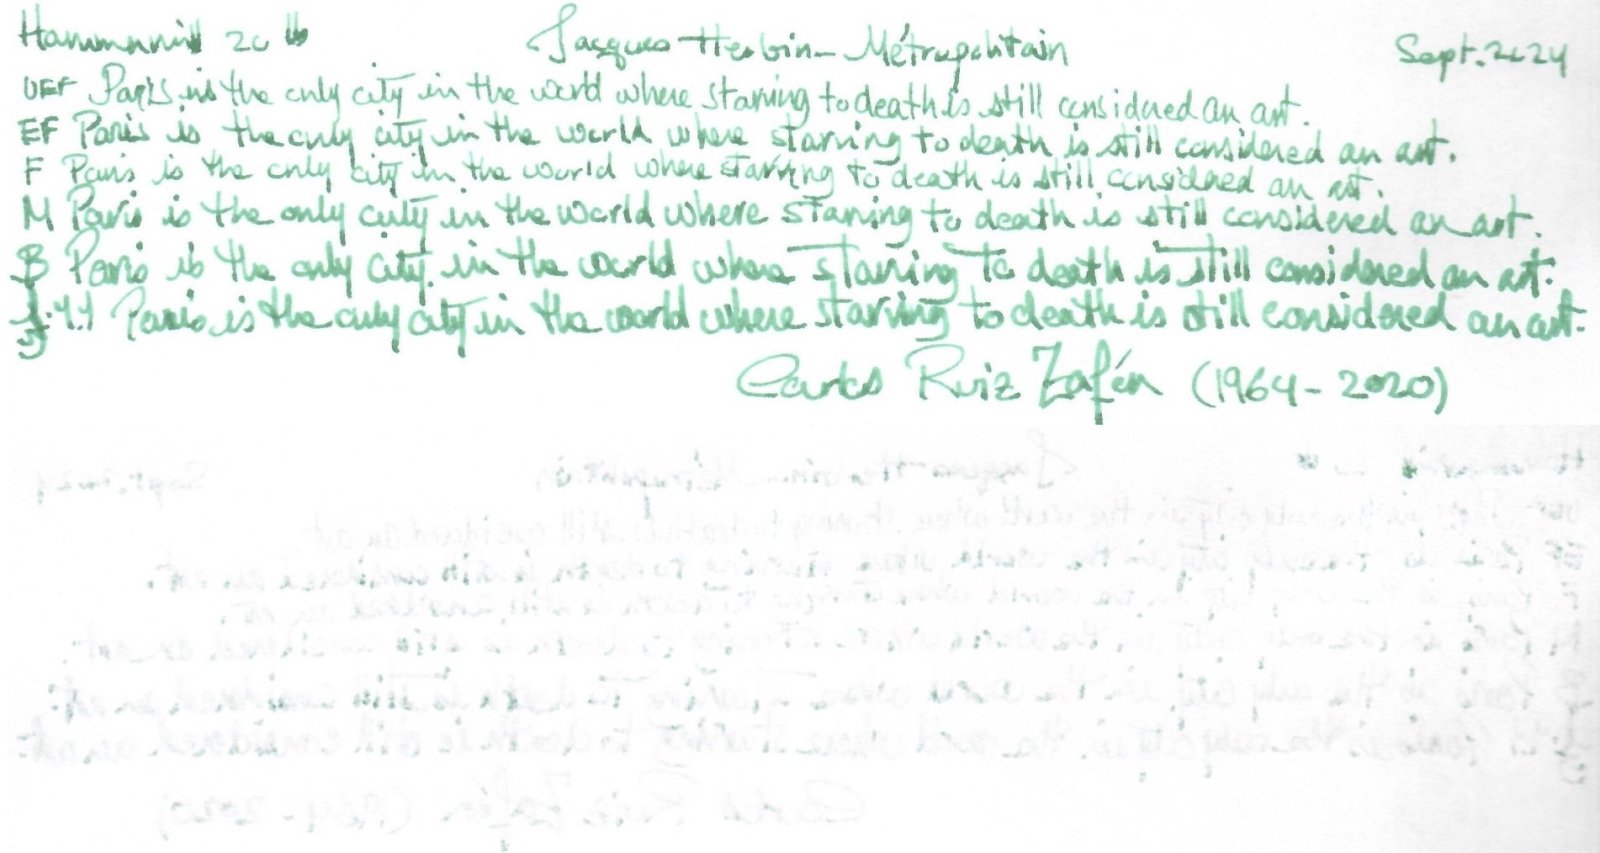 Hammermill 20 lb Jacques Herbin - Métropolitain Sept. 2024
UEF Paris is the only city in the world where starving to death is still considered an art.
EF Paris is the only city in the world where starving to death is still considered an art.
F Paris is the only city in the world where starving to death is still considered an art.
M Paris is the only city in the world where starving to death is still considered an art.
B Paris is the only city in the world where starving to death is still considered an art.
J. 1.1 Paris is the only city in the world where starving to death is still considered an art.
Carlos Ruiz Zafón (1964-2020)